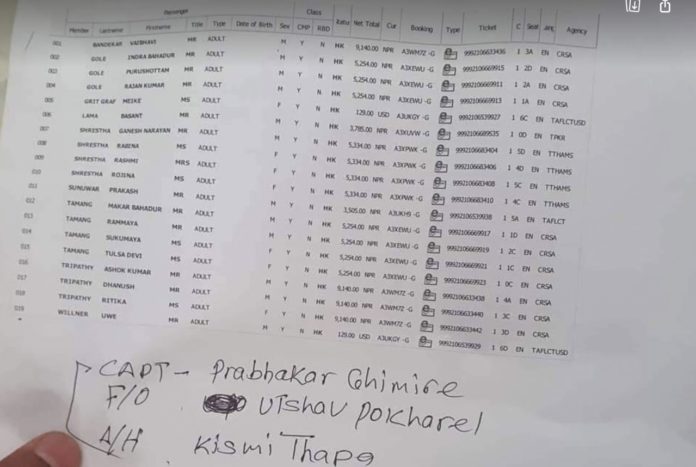 Passenger Class
Member Lastname Firstname Title Type Date of Birth Sex CMP RBD Statu Net Total Cur Booking Type Ticket C Seat Agency
001 BANDEKAR VAIBHAVI MR ADULT M Y N HK 9,140.00 NPR A3WM7Z -G 9992106633436 1 3A EN CRSA
002 GOLE INDRA BAHADUR MR ADULT M Y N HK 5,254.00 NPR A3XEWU -G 9992106669915 1 2D EN CRSA
003 GOLE PURUSHOTTAM MR ADULT M Y N HK 5,254.00 NPR A3XEWU -G 9992106669911 1 2A EN CRSA
004 GOLE RAJAN KUMAR MR ADULT M Y N HK 5,254.00 NPR A3XEWU -G 9992106669913 1 1A EN CRSA
005 GRIT GRAF MEIKE MS ADULT F Y N HK 129.00 USD A3UKGY -G 9992106539927 1 6C EN TAFLCTUSD
006 LAMA BASANT MR ADULT M Y N HK 3,785.00 NPR A3XUVW -G 9992106689535 1 0D EN TPKR
007 SHRESTHA GANESH NARAYAN MR ADULT M Y N HK 5,334.00 NPR A3XPWK -G 9992106683404 1 5D EN TTHAMS
008 SHRESTHA RABINA MS ADULT F Y N HK 5,334.00 NPR A3XPWK -G 9992106683406 1 4D EN TTHAMS
009 SHRESTHA RASHMI MRS ADULT F Y N HK 5,334.00 NPR A3XPWK -G 9992106683408 1 5C EN TTHAMS
010 SHRESTHA ROJINA MS ADULT F Y N HK 5,334.00 NPR A3XPWK -G 9992106683410 1 4C EN TTHAMS
011 SUNUWAR PRAKASH MR ADULT M Y N HK 3,505.00 NPR A3UKH9 -G 9992106539938 1 5A EN TAFLCT
012 TAMANG MAKAR BAHADUR MR ADULT M Y N HK 5,254.00 NPR A3XEWU -G 9992106669917 1 1D EN CRSA
013 TAMANG RAMMAYA MR ADULT Y N HK 5,254.00 NPR A3XEWU -G 9992106669919 1 2C EN CRSA
014 TAMANG SUKUMAYA MS ADULT F Y N HK 5,254.00 NPR A3XEWU -G 9992106669921 1 1C EN CRSA
015 TAMANG TULSA DEVI MS ADULT F Y N HK 5,254.00 NPR A3XEWU -G 9992106669923 1 0C EN CRSA
016 TRIPATHY ASHOK KUMAR MR ADULT M Y N HK 9,140.00 NPR A3WM7Z -G 9992106633438 1 4A EN CRSA
017 TRIPATHY DHANUSH MR ADULT M Y N HK 9,140.00 NPR A3WM7Z -G 9992106633440 1 3C EN CRSA
018 TRIPATHY RITIKA MS ADULT F Y N HK 9,140.00 NPR A3WM7Z -G 9992106633442 1 3D EN CRSA
019 WILLNER UWE MR ADULT M Y N HK 129.00 USD A3UKGY -G 9992106539929 1 6D EN TAFLCTUSD
CAPT - Prabhakar Ghimire
F/O Utshav Pokharel
A/H Kismi Thapa